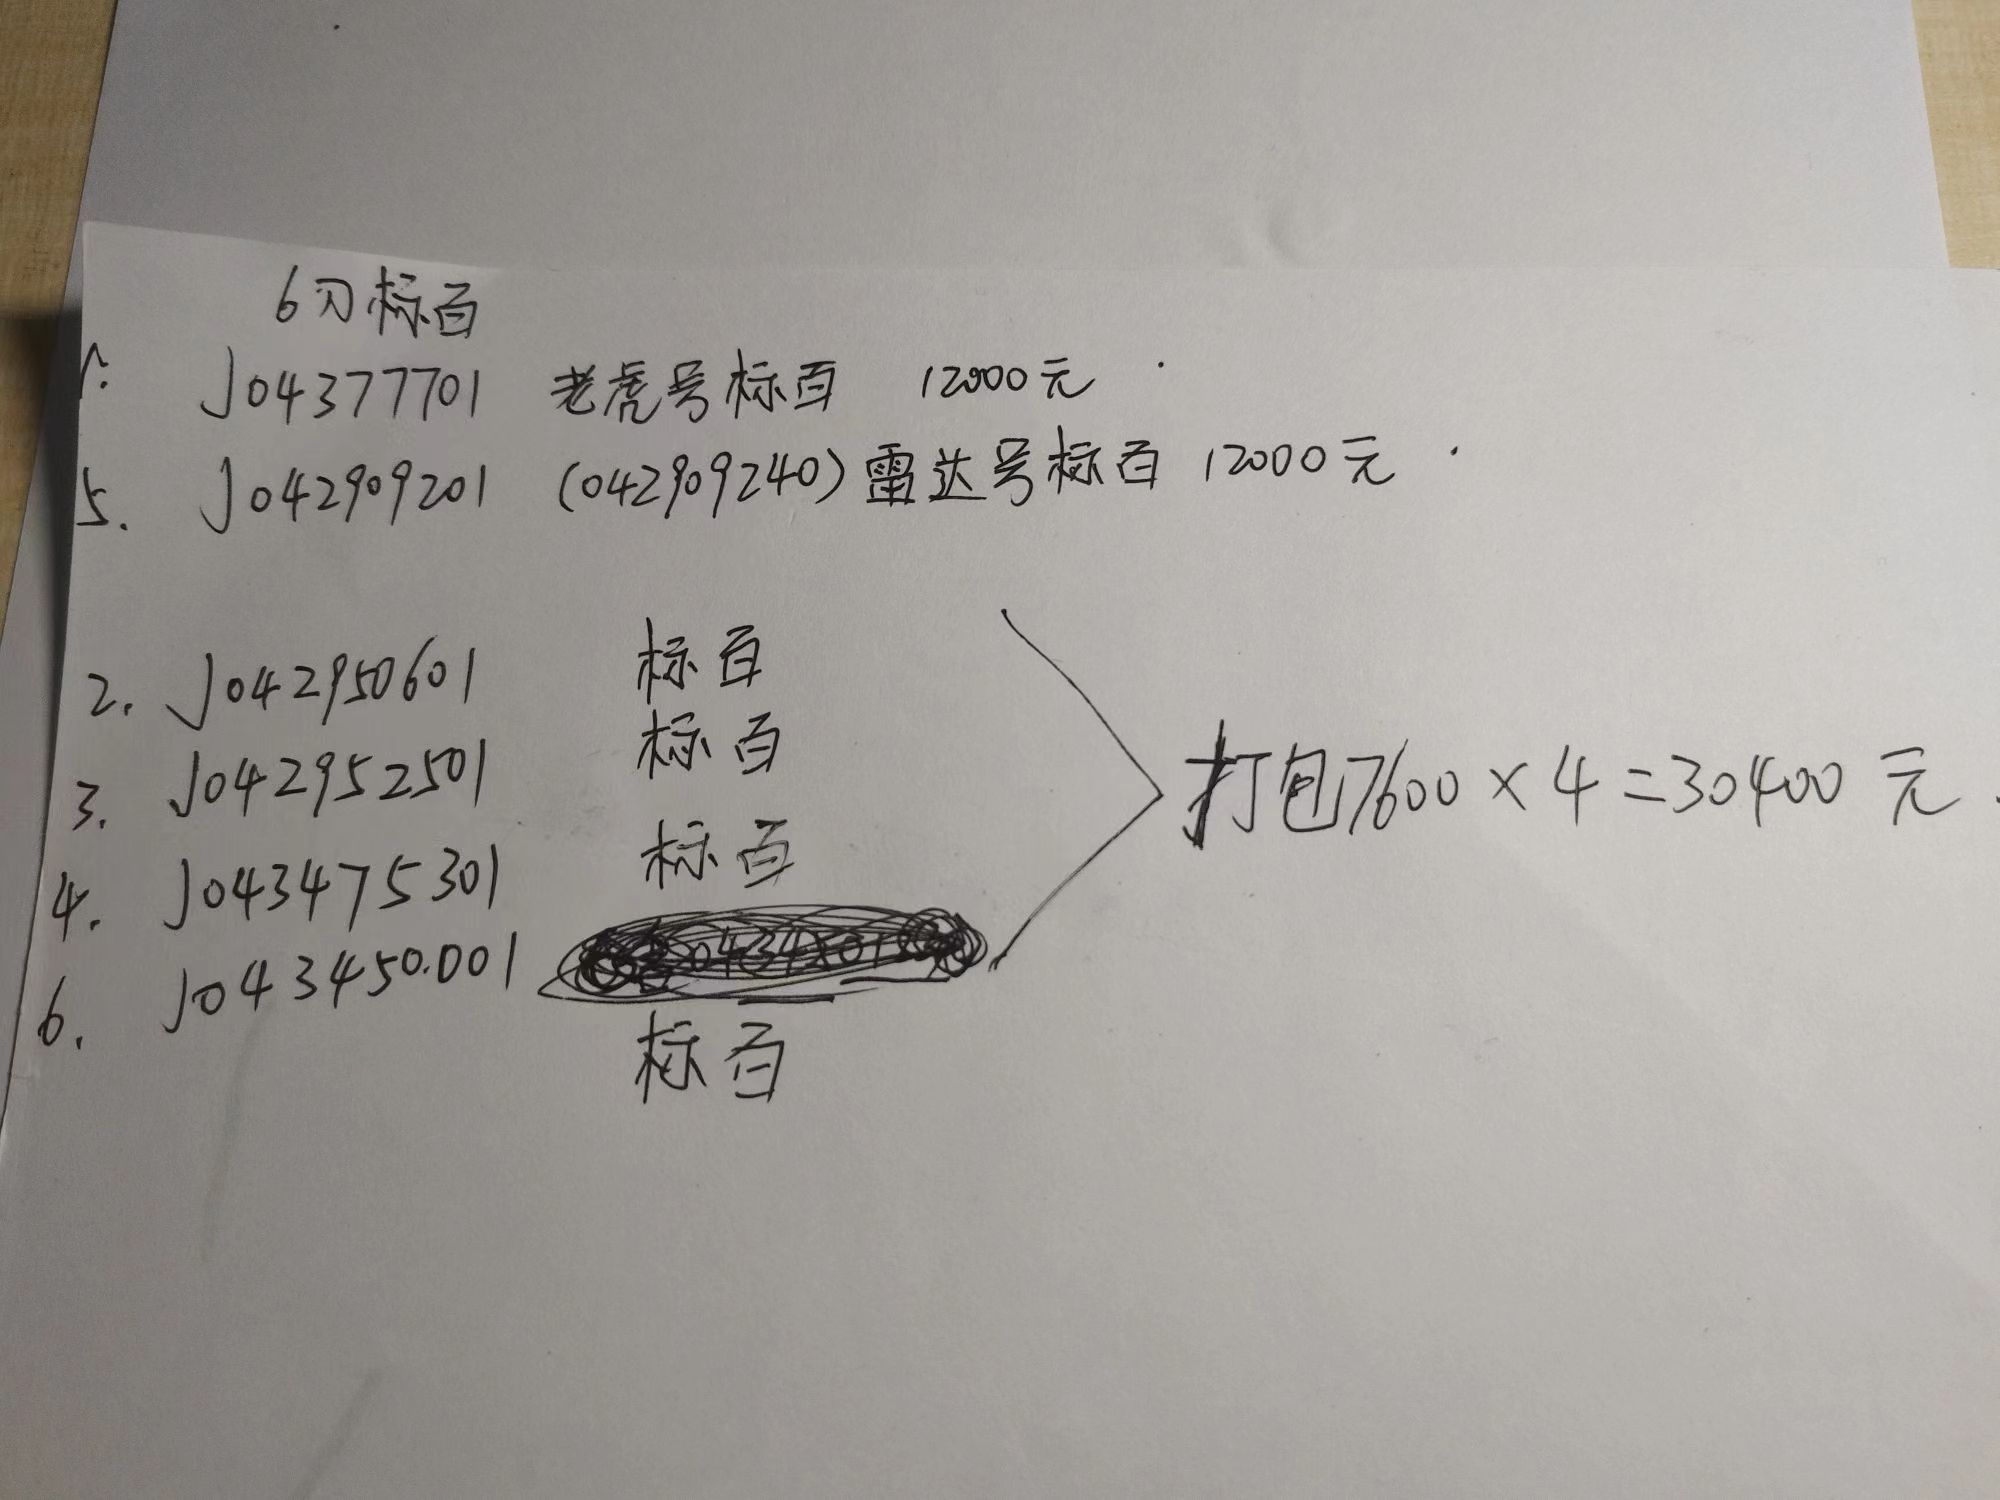 6刀标百
1. J04377701 老虎号标百 12000元
5. J042909201 (042909240)雷达号标百 12000元
2. J042950601 标百
3. J042952501 标百
4. J043475301 标百
6. J043450.001
标百
打包7600×4=30400元